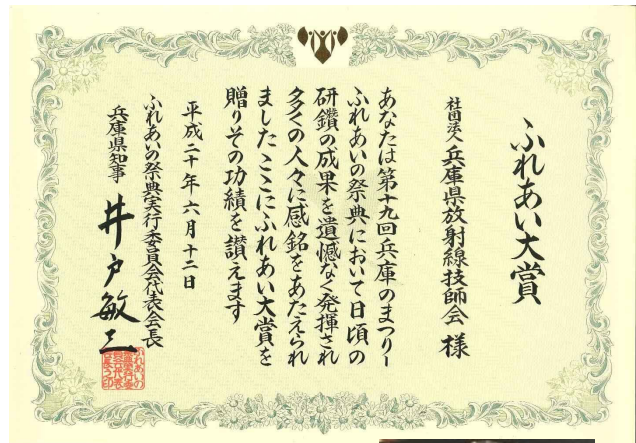 ふれあい大賞
社団法人 兵庫県放射線技師会 様
あなたは第十九回兵庫のまつりー
ふれあいの祭典において日頃の
研鑽の成果を遺憾なく発揮され
多くの人々に感銘をあたえられ
ましたここにふれあい大賞を
贈りその功績を讃えます
平成二十年六月十二日
ふれあいの祭典実行委員会代表会長
兵庫県知事 井戸敏三